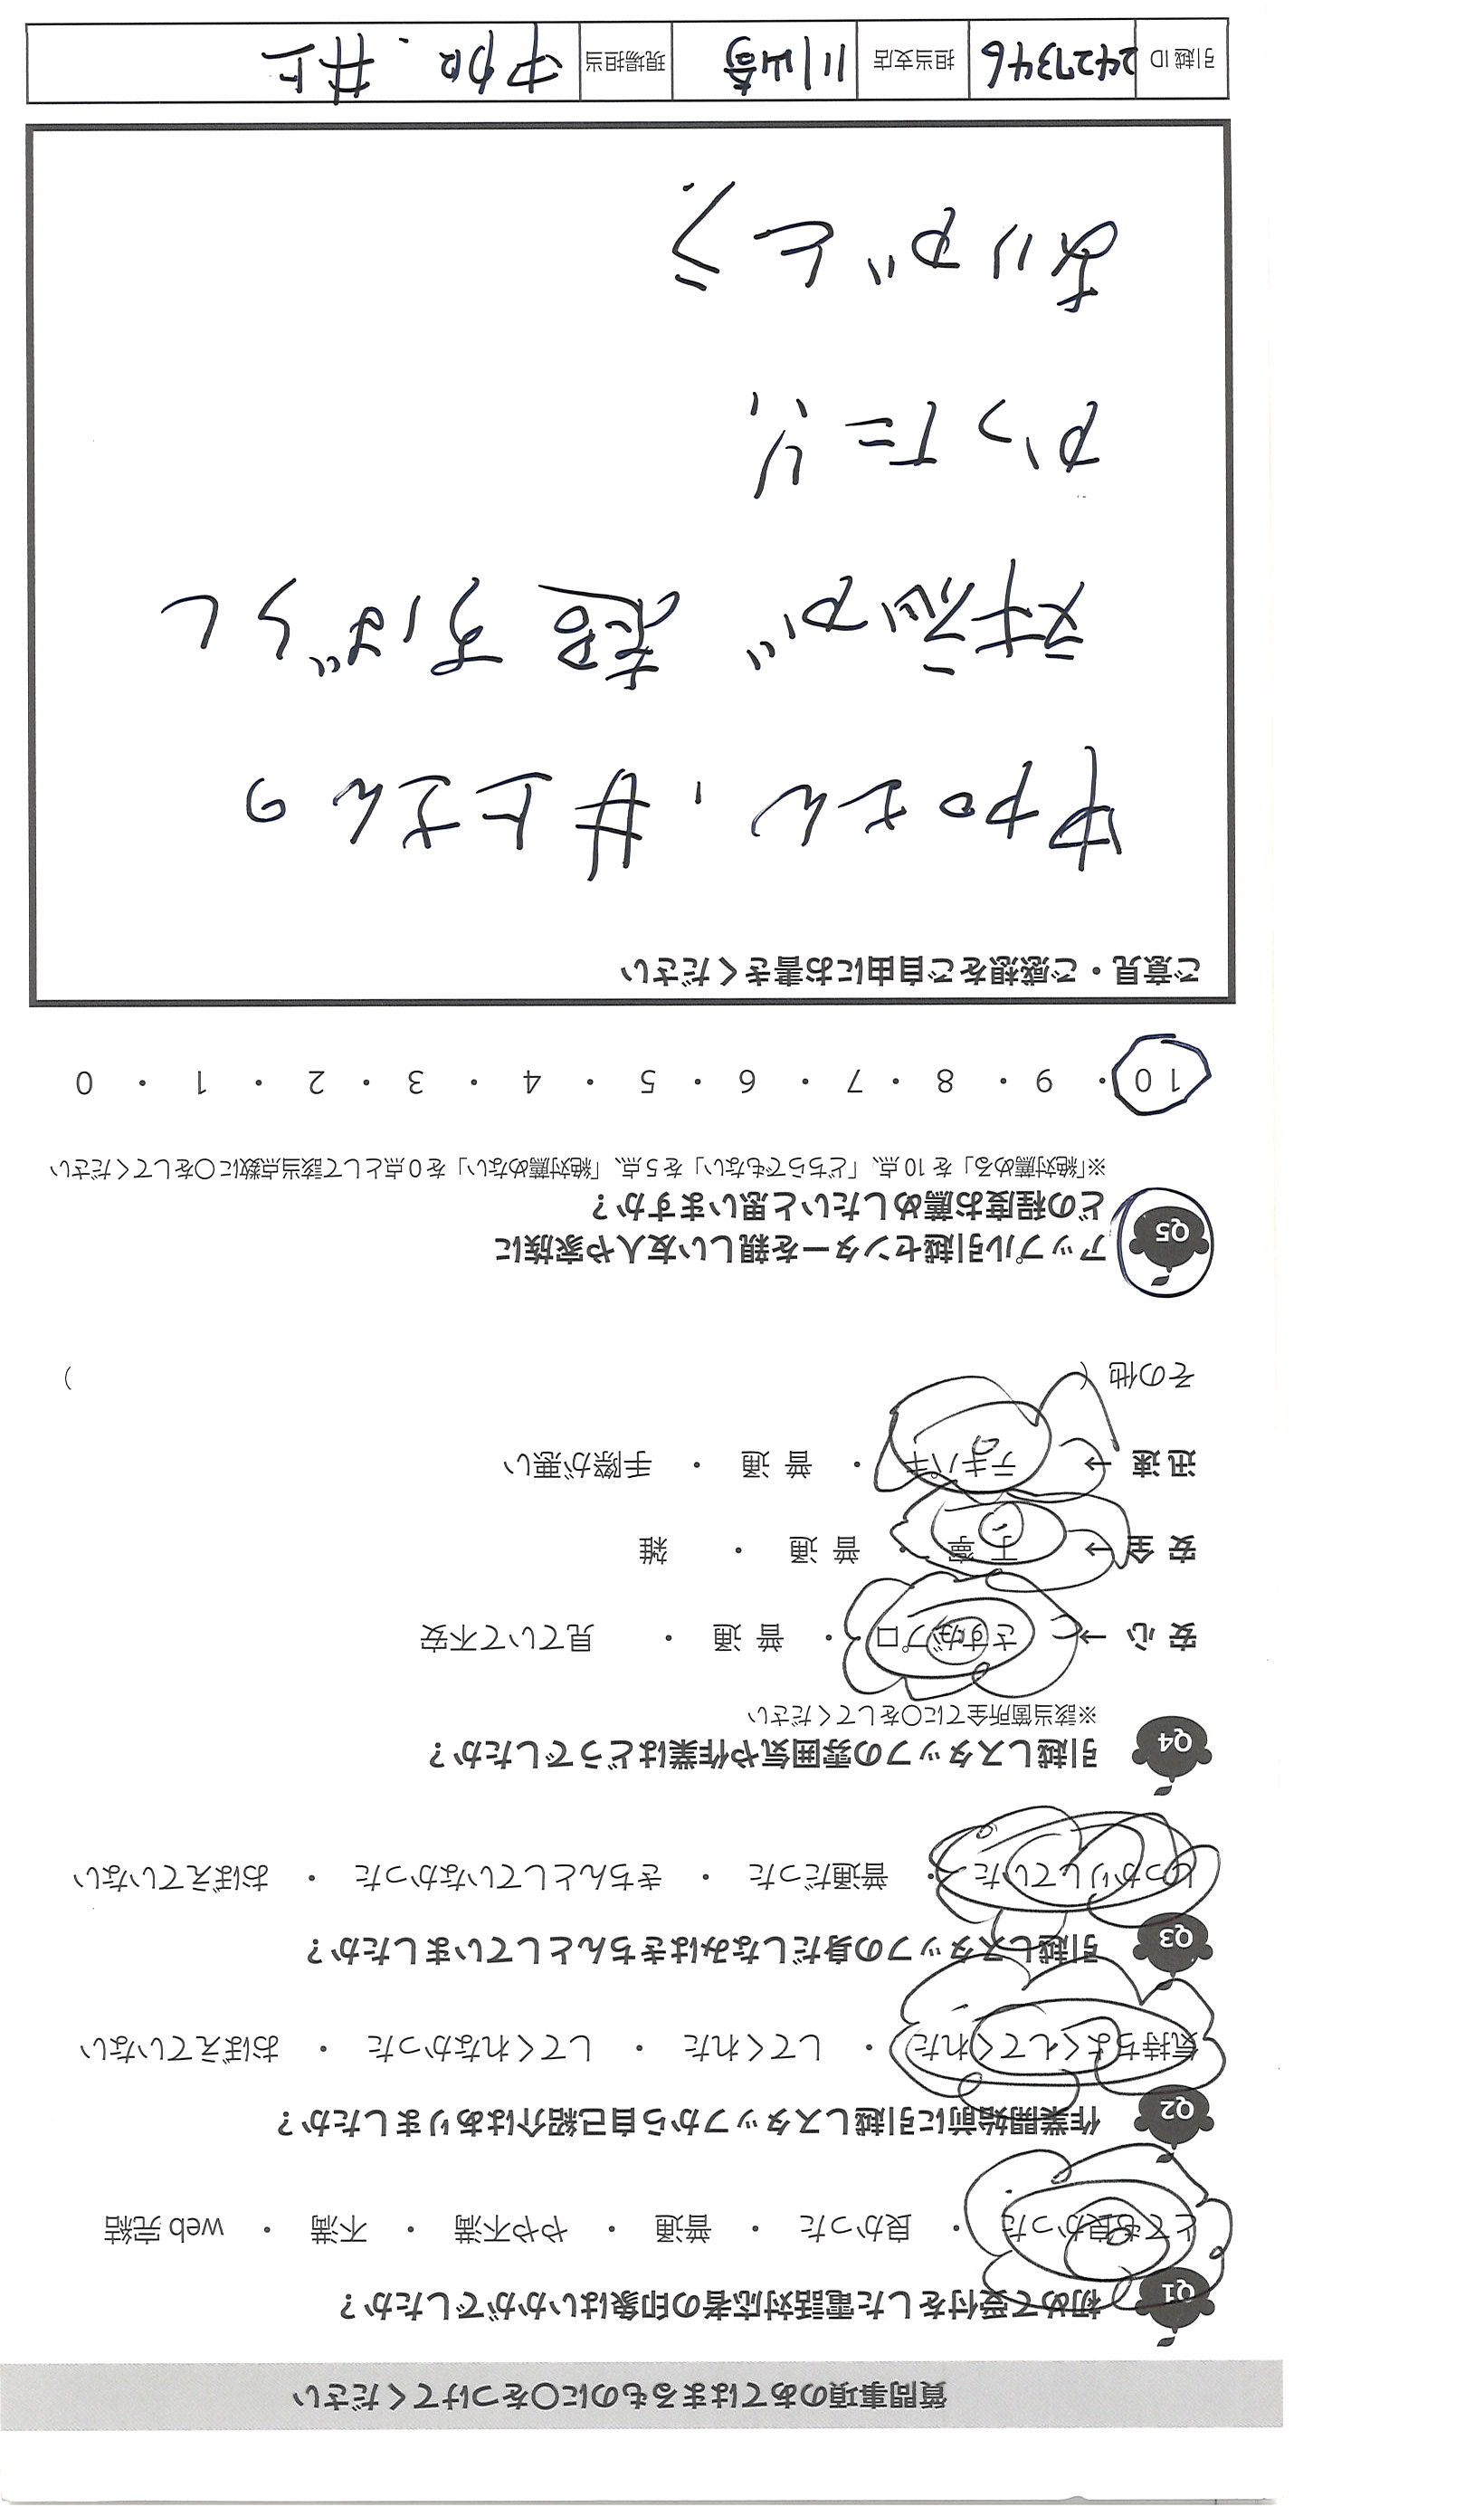 質問事項のあてはまるものに〇をつけてください
Q1 初めて受付をした電話対応者の印象はいかがでしたか？
とても良かった ・ 良かった ・ 普通 ・ やや不満 ・ 不満 ・ web 完結
Q2 作業開始前に引越しスタッフから自己紹介はありましたか？
気持ちよくしてくれた ・ してくれた ・ してくれなかった ・ おぼえていない
Q3 引越しスタッフの身だしなみはきちんとしていましたか？
しっかりしていた ・ 普通だった ・ きちんとしていなかった ・ おぼえていない
Q4 引越しスタッフの雰囲気や作業はどうでしたか？
※該当箇所全てに〇をしてください
安心 → さすがプロ ・ 普通 ・ 見ていて不安
安全 → 丁寧 ・ 普通 ・ 雑
迅速 → テキパキ ・ 普通 ・ 手際が悪い
その他 ( )
Q5 アップル引越センターを親しい友人や家族に
どの程度お薦めしたいと思いますか？
※「絶対薦める」を 10 点、「どちらでもない」を 5 点、「絶対薦めない」を 0 点として該当点数に〇をしてください
10 ・ 9 ・ 8 ・ 7 ・ 6 ・ 5 ・ 4 ・ 3 ・ 2 ・ 1 ・ 0
ご意見・ご感想をご自由にお書きください
さん、井上さんの
対応が 超 すばらし
かった!!
ありがとう!
引越 ID 2427346 担当支店 川崎 現場担当 井上